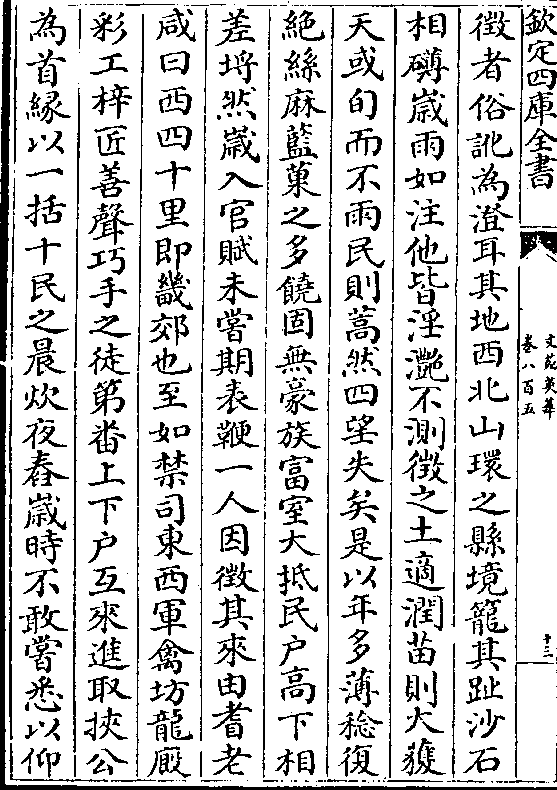 欽定四庫全書
文苑英華
卷八百五
十三
徵者俗訛為澄耳其地西北山環之縣境籠其趾沙石
相礡歲雨如注他皆淫灔不測徵之土適潤苗則大獲
天或旬而不雨民則蒿然四望失矣是以年多薄稔復
絶絲麻藍菓之多饒固無豪族富室大抵民户高下相
差埒然歲入官賦未嘗期表鞭一人因徵其來由耆老
咸曰西四十里即畿郊也至如禁司東西軍禽坊龍廐
彩工梓匠善聲巧手之徒第番上下户互來進取挾公
為首縁以一括十民之晨炊夜舂歲時不敢嘗悉以仰